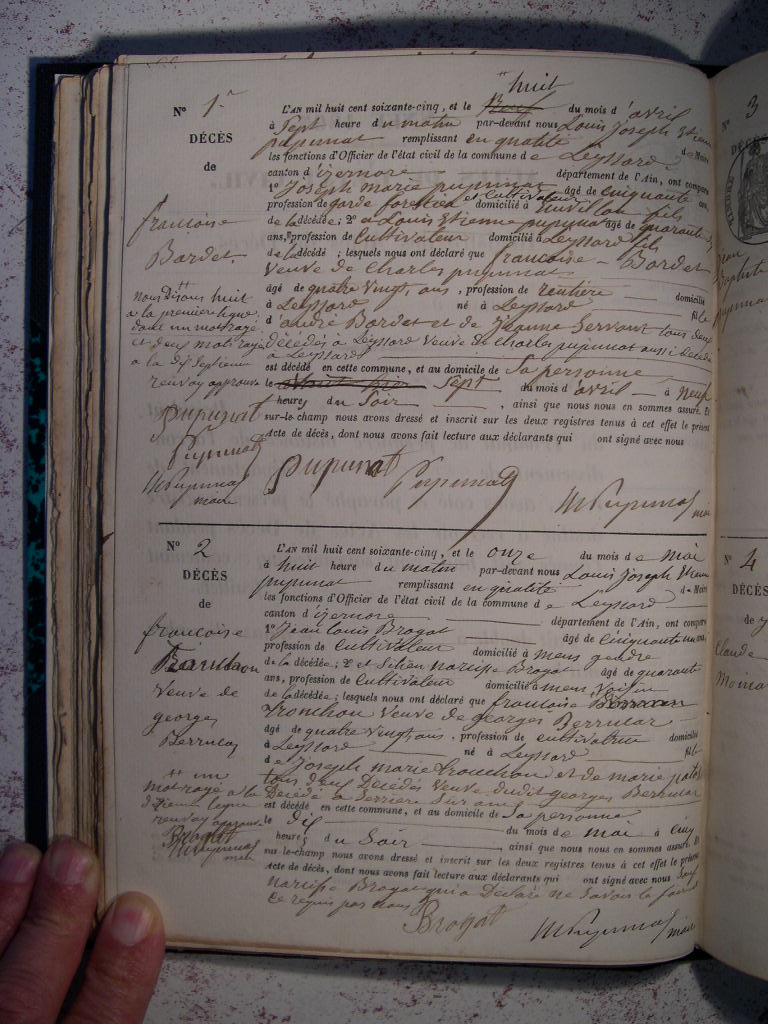 N° 1er
DÉCÈS
de
françoise
Bordet
nous disons huit
a la première ligne
dont un mot rayé
et deux mots rayés
a la
renvoy approuvé
Pupunat
Pupunat
Pupunat
maire
huit
L'AN mil huit cent soixante-cinq, et le du mois d'avril
à Sept heure du matin par-devant nous Louis Joseph Etienne
pupunat remplissant en qualité de Maire
les fonctions d'Officier de l'état civil de la commune de Leyssard
canton d'izernore département de l'Ain, ont comparu
1° Joseph marie pupunat âgé de cinquante ans,
profession de garde forestier et cultivateur domicilié à fils
de la décédée; 2° a Louis Etienne pupunat âgé de quarante
ans, profession de Cultivateur domicilié à Leyssard fils
de la décédée; lesquels nous ont déclaré que françoise Bordet
Veuve de Charles pupunat
âgé de quatre vingt ans, profession de rentière domicilié
à Leyssard né à Leyssard fille
d'andré Bordet et de Jeanne Servant tous deux
Décédés à Leyssard Veuve de Charles pupunat aussi Décédé
a Leyssard
est décédé en cette commune, et au domicile de Sa personne
le Sept du mois d'avril à neuf
heures du Soir, ainsi que nous nous en sommes assuré. Et
sur-le-champ nous avons dressé et inscrit sur les deux registres tenus à cet effet le présent
Acte de décès, dont nous avons fait lecture aux déclarants qui ont signé avec nous
Pupunat Pupunat Pupunat maire
N° 2
DÉCÈS
de
françoise
Veuve de
georges
Berrucaz
un
mot rayé a la
ligne
renvoy approuvé
Brogat
Pupunat
maire
L'AN mil huit cent soixante-cinq, et le onze du mois de mai
à huit heure du matin par-devant nous Louis Joseph Etienne
pupunat remplissant en qualité de Maire
les fonctions d'Officier de l'état civil de la commune de Leyssard
canton d'izernore département de l'Ain, ont comparu
1° Jean Louis Brogat âgé de cinquante un ans,
profession de Cultivateur domicilié à mens gendre
de la décédée; 2° et narcisse Brogat âgé de quarante
ans, profession de Cultivateur domicilié à mens Voisin
de la décédée; lesquels nous ont déclaré que françoise
Tronchon Veuve de georges Berrucaz
âgé de quatre vingt ans, profession de cultivatrice domicilié
à Leyssard né à Leyssard fille
de Joseph marie trouchon et de marie
tous deux Décédés Veuve dudit georges Berrucaz
Décédé a Serrières Sur ain
est décédé en cette commune, et au domicile de Sa personne
le Dix du mois de mai à Cinq
heures du Soir, ainsi que nous nous en sommes assuré. Et
sur-le-champ nous avons dressé et inscrit sur les deux registres tenus à cet effet le présent
Acte de décès, dont nous avons fait lecture aux déclarants qui ont signé avec nous Sauf
narcisse Brogat qui a Déclaré ne Savoir le faire
Ce requis par nous
Brogat Pupunat maire
N° 3
N° 4
DÉCÈS
de
Claude